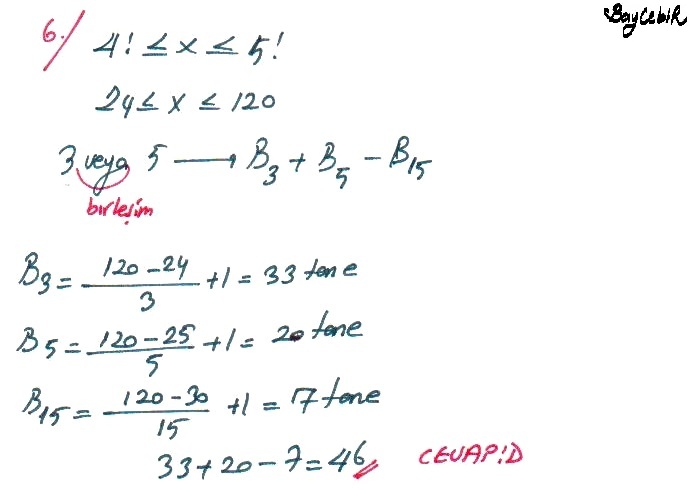 BayCebiR
6.) 4! ≤ x ≤ 5!
24 ≤ x ≤ 120
3 veya 5 → B₃ + B₅ - B₁₅
birleşim
B₃ = (120-24)/3 +1 = 33 tane
B₅ = (120-25)/5 +1 = 20 tane
B₁₅ = (120-30)/15 +1 = 7 tane
33+20-7=46 CEVAP:D